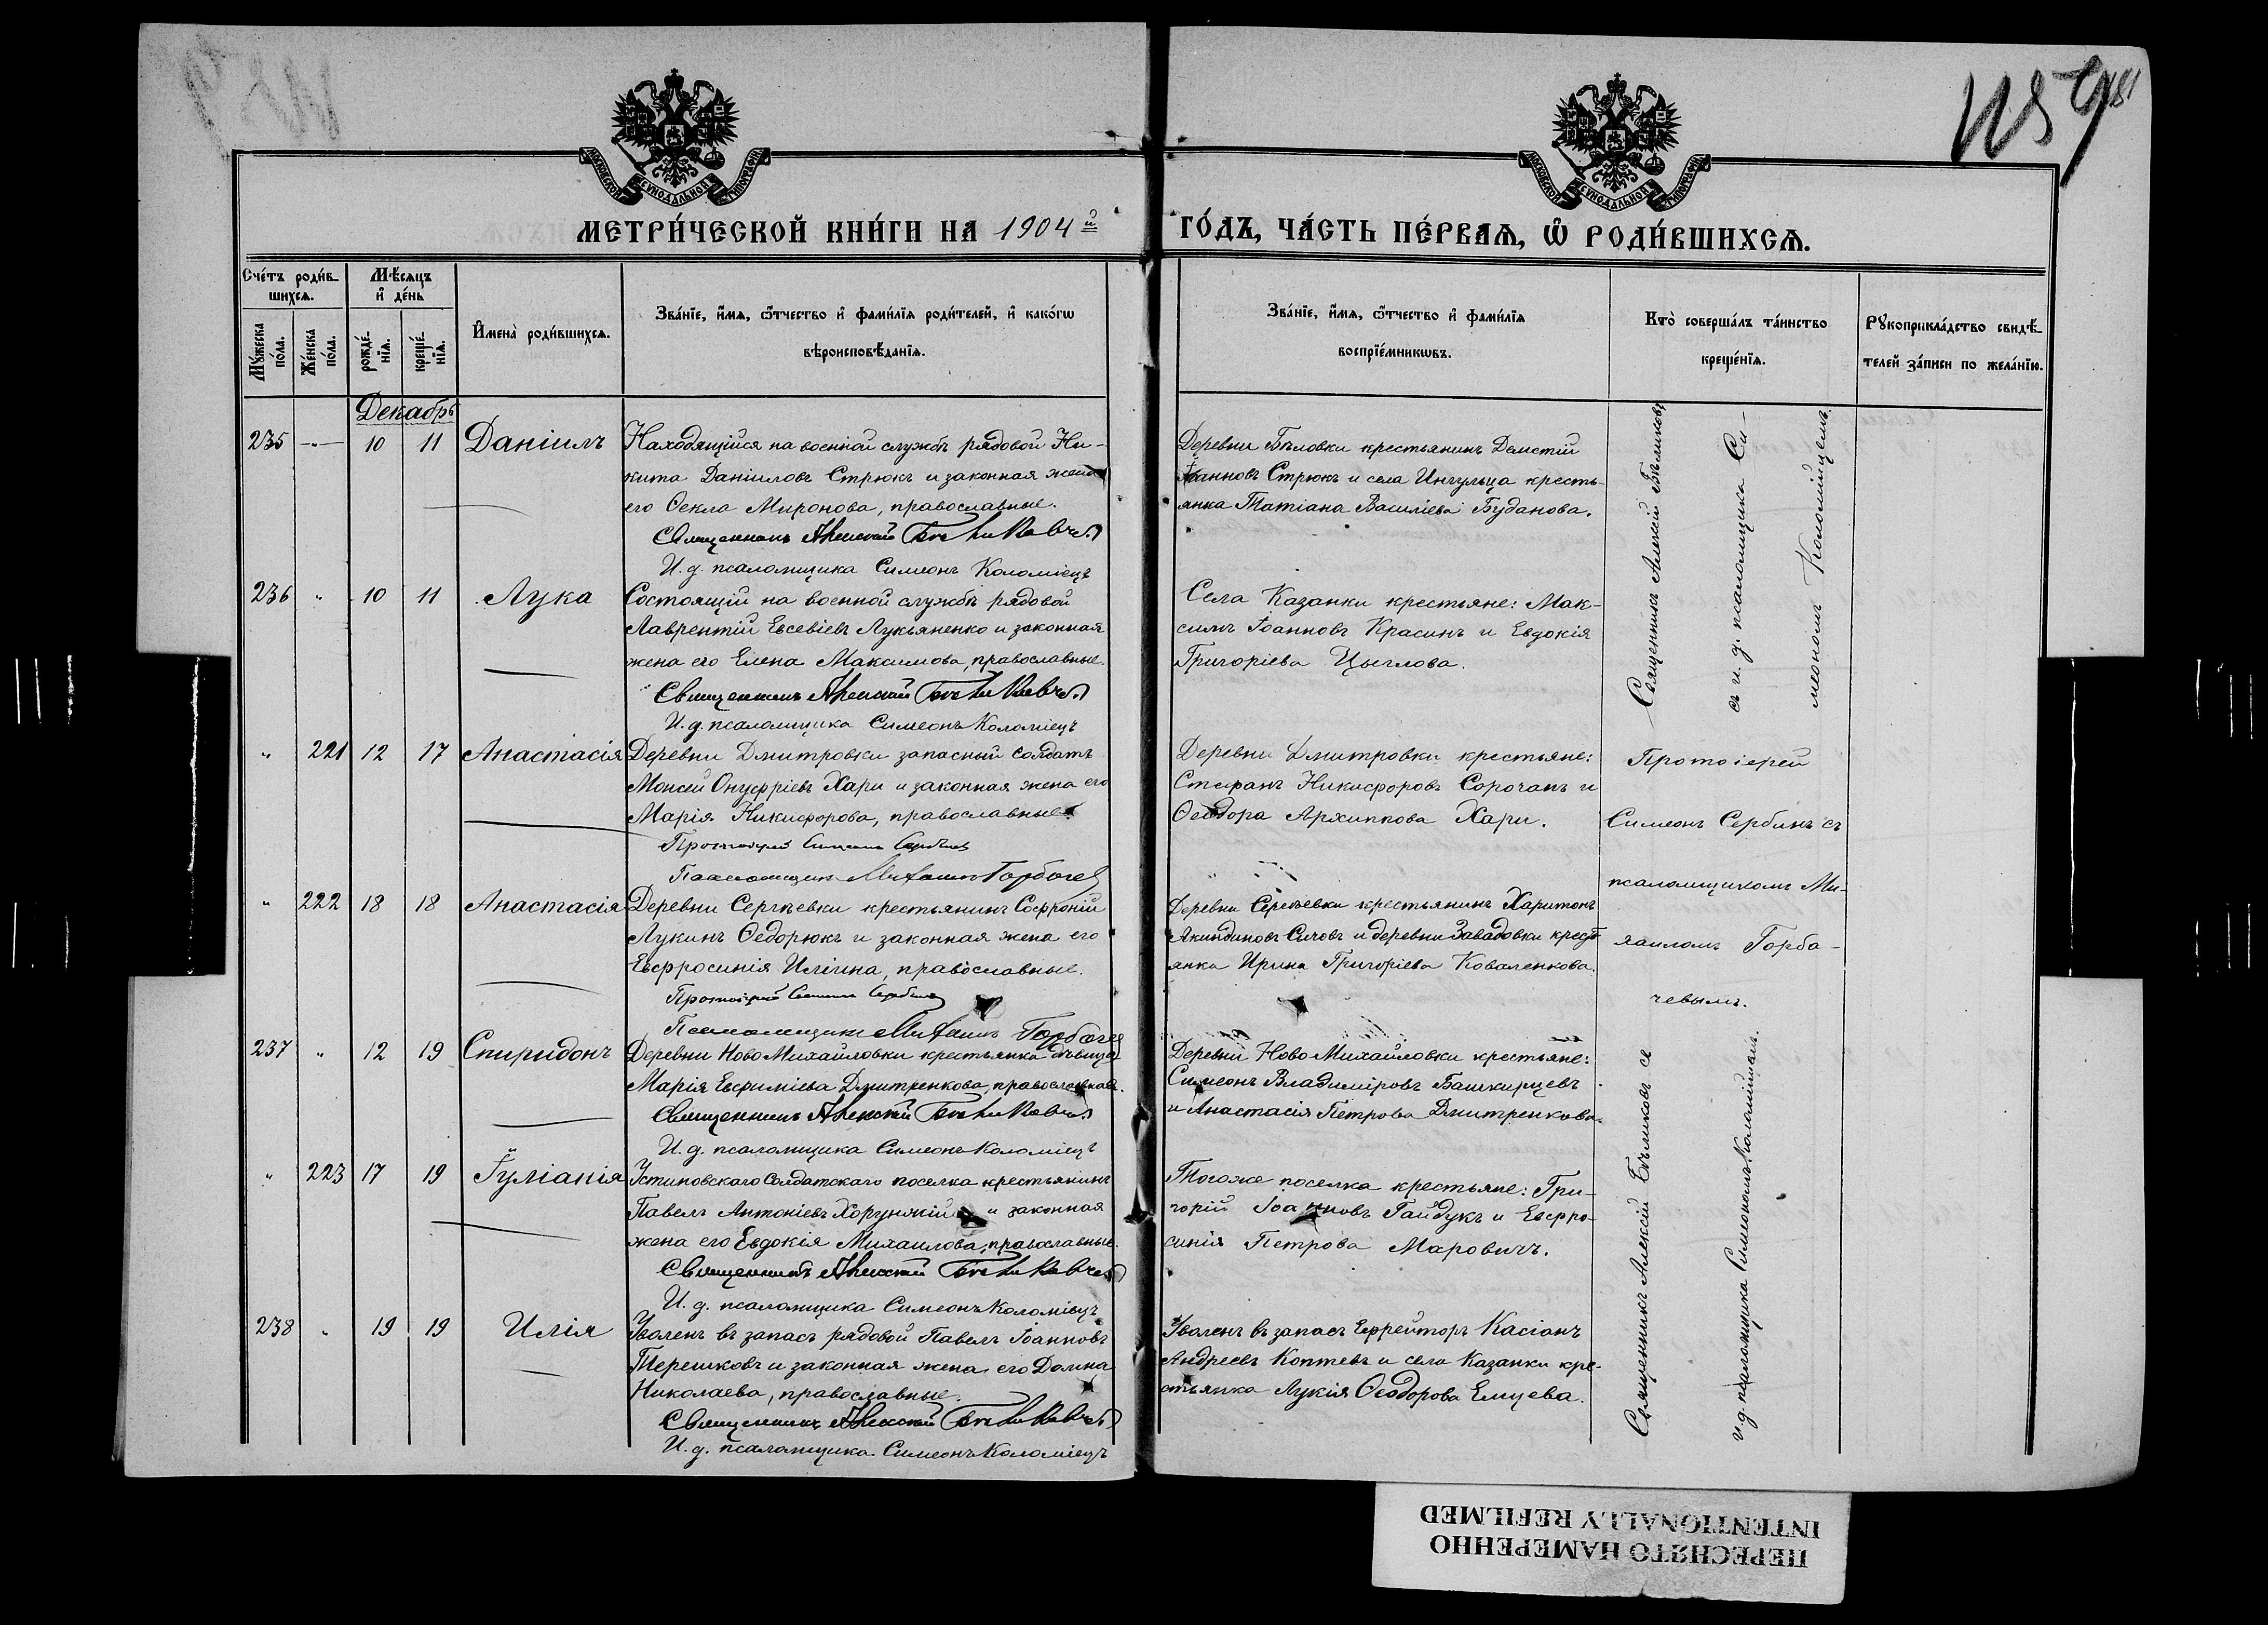 1159
МОСКОВСКОЙ СУНОДАЛЬНОЙ ТИПОГРАФІИ
МОСКОВСКОЙ СУНОДАЛЬНОЙ ТИПОГРАФІИ
МЕТРИ́ЧЕСКОЙ КНИ́ГИ НА 1904й
ГО́ДЪ, ЧА́СТЬ ПЕ́РВАѦ, Ѡ҆ РОДИ́ВШИХСѦ.
Сче́тъ роди́в-
шихсѧ.
Мꙋ́жеска по́ла.
Же́нска по́ла.
Мѣ́сѧцъ и҆ де́нь
рожде́-нїѧ.
креще́-нїѧ.
И҆мена̀ роди́вшихсѧ.
Зва́нїе, и҆́мѧ, ѻ҆́тчество и҆ фами́лїѧ роди́телей, и҆ како́гѡ
вѣроисповѣ́данїѧ.
Зва́нїе, и҆́мѧ, ѻ҆́тчество и҆ фами́лїѧ
воспрїе́мникѡвъ.
Кто̀ соверша́лъ та́инство
креще́нїѧ.
Рꙋкоприкла́дство свидѣ́-
телей за́писи по жела́нїю.
Декабрь
235 -„- 10 11 Даніилъ
Находящійся на военной службѣ рядовой Ни-
кита Даніиловъ Стрюкъ и законная жена
его Ѳекла Миронова, православные.
Священникъ Алексій Бѣликовъ
И. д. псаломщика Симеонъ Коломіецъ
Деревни Бѣловки крестьянинъ Дометій
Іоанновъ Стрюкъ и села Ингульца кресть-
янка Татіана Василіева Буданова.
Священникъ Алексій Бѣликовъ
съ и. д. псаломщика Си-
меономъ Коломійцемъ.
236 „ 10 11 Лука
Состоящій на военной службѣ рядовой
Лаврентій Евсевіевъ Лукьяненко и законная
жена его Елена Максимова, православные.
Священникъ Алексій Бѣликовъ
И. д. псаломщика Симеонъ Коломіецъ
Села Казанки крестьяне: Мак-
симъ Іоанновъ Красинъ и Евдокія
Григоріева Цыглова.
„ 221 12 17 Анастасія
Деревни Дмитровки запасный солдатъ
Моисей Онуфріевъ Хари и законная жена его
Марія Никифорова, православные.
Протоіерей Симеонъ Сербинъ
Псаломщикъ Михаилъ Горбачев
Деревни Дмитровки крестьяне:
Стефанъ Никифоровъ Сорочанъ и
Ѳеодора Архиппова Хари.
Протоіерей
Симеонъ Сербинъ съ
псаломщикомъ Ми-
хаиломъ Горба-
чевымъ.
„ 222 18 18 Анастасія
Деревни Сергѣевки крестьянинъ Софроній
Лукинъ Ѳедорюкъ и законная жена его
Евфросинія Иліина, православные.
Протоіерей Симеонъ Сербинъ
Псаломщикъ Михаилъ Горбачев
Деревни Сергѣевки крестьянинъ Харитонъ
Акиндиновъ Сичовъ и деревни Завадовки крест-
янка Ирина Григоріева Коваленкова.
237 „ 12 19 Спиридонъ
Деревни НовоМихайловки крестьянка дѣвица
Марія Евфиміева Дмитренкова, православная.
Священникъ Алексій Бѣликовъ
И. д. псаломщика Симеонъ Коломіецъ
Деревни НовоМихайловки крестьяне:
Симеонъ Владиміровъ Башкирцевъ
и Анастасія Петрова Дмитренкова.
Священникъ Алексій Бѣликовъ съ
и. д. псаломщика Симеономъ Коломійцемъ.
„ 223 17 19 Іуліанія
Устиновскаго Солдатскаго поселка крестьянинъ
Павелъ Антоніевъ Хорунжій и законная
жена его Евдокія Михаилова, православные.
Священникъ Алексій Бѣликовъ
И. д. псаломщика Симеонъ Коломіецъ
Тогоже поселка крестьяне: Гри-
горій Іоанновъ Гайдукъ и Евфро-
синія Петрова Маровичъ.
238 „ 19 19 Илія
Уволенъ въ запасъ рядовой Павелъ Іоанновъ
Терешковъ и законная жена его Домна
Николаева, православные.
Священникъ Алексій Бѣликовъ
И. д. псаломщика Симеонъ Коломіецъ
Уволенъ въ запасъ Ефрейторъ Касіанъ
Андреевъ Коптевъ и села Казанки кре-
стьянка Лукія Ѳеодорова Емцева.
ПЕРЕСНЯТО НАМЕРЕННО
INTENTIONALLY REFILMED